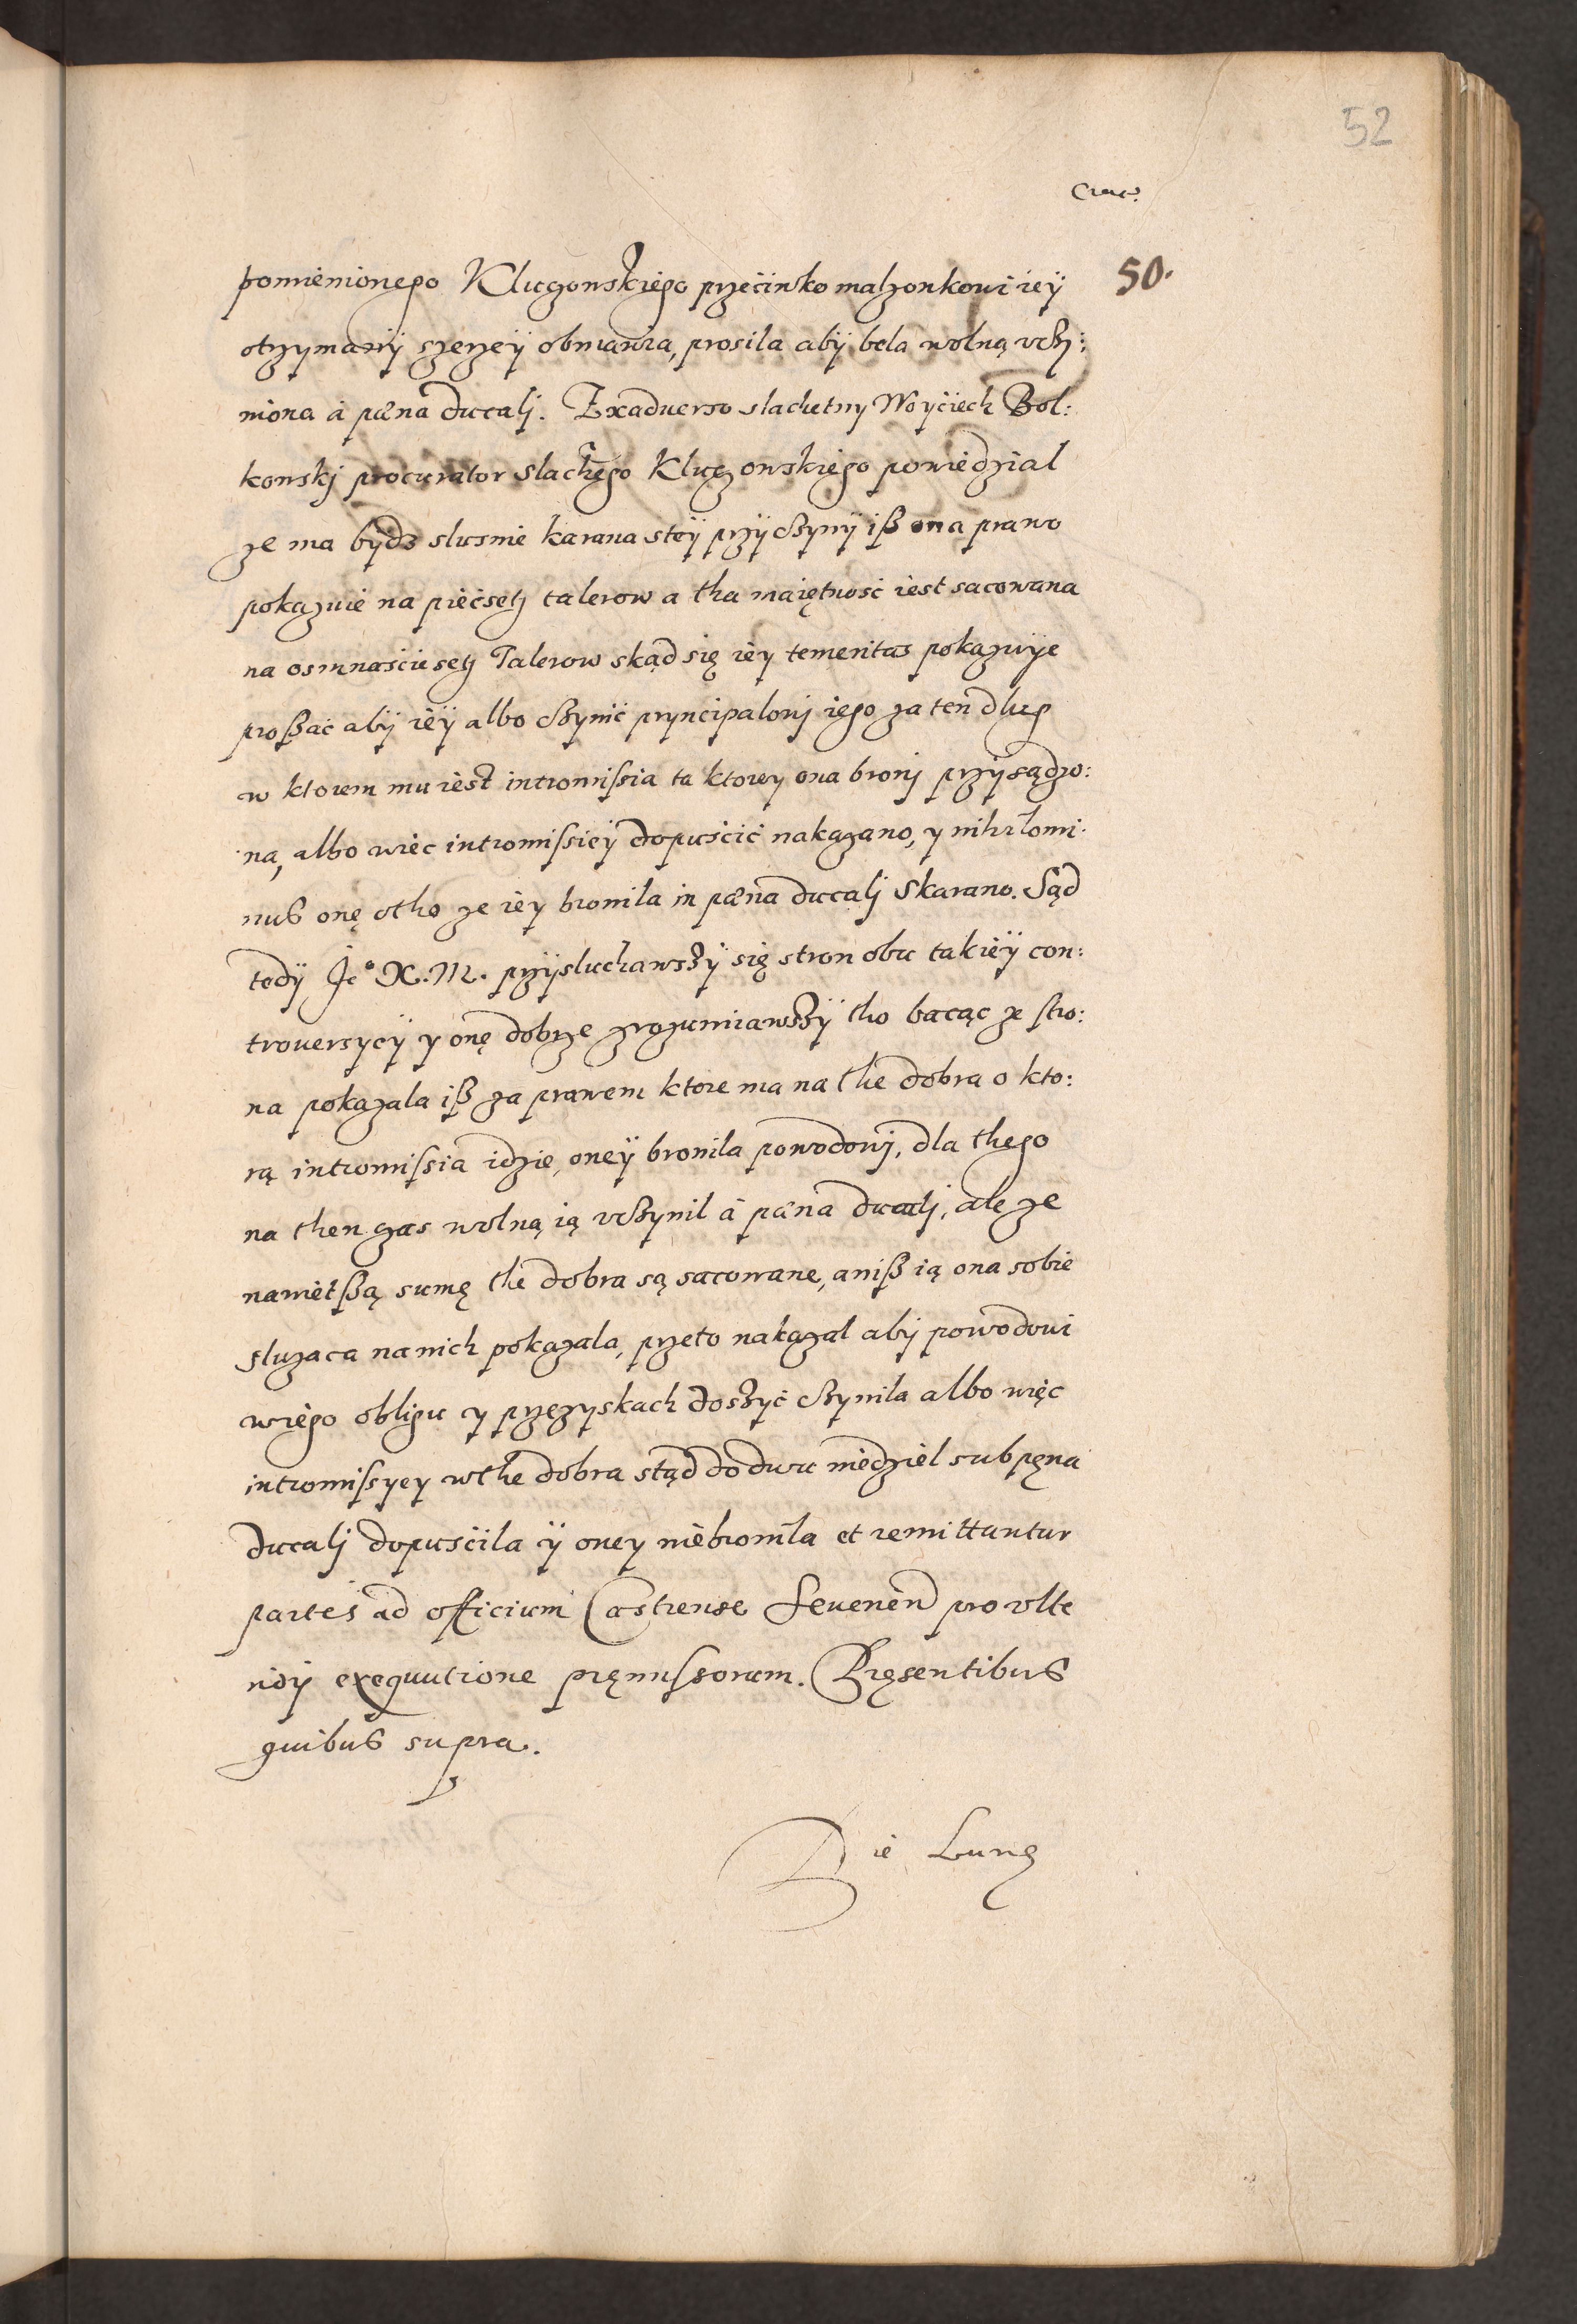 52
50.
pomienionego Kluczowskiego przećiwko małzonkowi ieÿ
otrzymanÿ szerzeÿ obmawia, prosila abÿ bela wolną vcżÿ:
niona á pæna ducalj. Exaduerso slachetny Woyćiech Bol:
kowskj procurator slachego Kluczowskiego powiedzial
ze ma bÿdz slusnie karana steÿ przÿcżynÿ iß ona prawo
pokazuie na piećsetz talerow a tha maiętnosć iest sacowana
na osmnasćie setz Talerow skąd się iey temeritas pokazuÿe
proßać abÿ ieÿ albo cżynić pryncipalowj iego za ten dlug
w ktorem mu iest intromißia ta ktorey ona bronj przysądzo:
na, albo więc intromißieÿ dopusćić nakazano, y nihilomi:
nus onę otho ze iey bronila in pæna ducalj skarano. Sąd
tedÿ Jeo X. M. przÿsluchawszÿ się stron obu takieÿ con:
trouersyeÿ y onę dobrze zrozumiawszÿ tho bacąc ze stro:
na pokazala iß za prawem ktore ma na the dobra o kto:
rą intromißia idzie, oneÿ bronila powodowj, dla thego
na then czas wolną ią vcżynil á pæna ducalj, ale ze
nawietßą sumę the dobra są sacowane, aniß ią ona sobie
sluzaca na nich pokazala, przeto nakazal abÿ powodowi
wiego obligu y przezyskach doszyć cżynila albo więc
intromißyey wthe dobra stąd do dwu niedziel sub pęna
ducalj dopusćila ÿ oney niebronila et remittuntur
partes ad officium Castrense Seuenen pro vlte
riorj exequutione pręmissorum. Pręsentibus
quibus supra.
Die Lunę